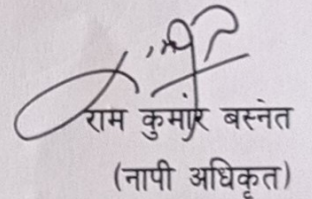 राम कुमार बस्नेत
(नापी अधिकृत)